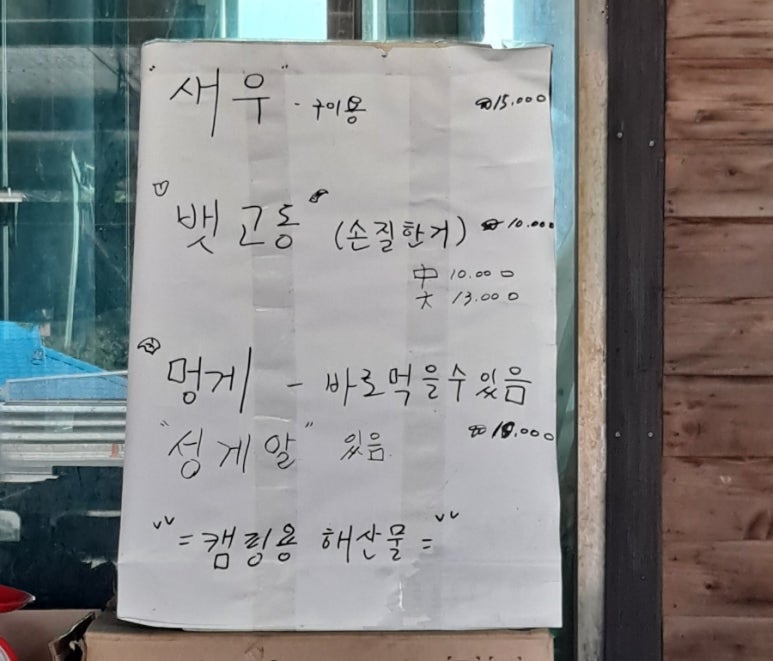 "새우" - 구이용 ₩15.000
뱃고동 (손질한거) ₩10.000
中 10.000
大 13.000
멍게 - 바로먹을수있음
"성게알" 있음.
= 캠핑용 해산물 =